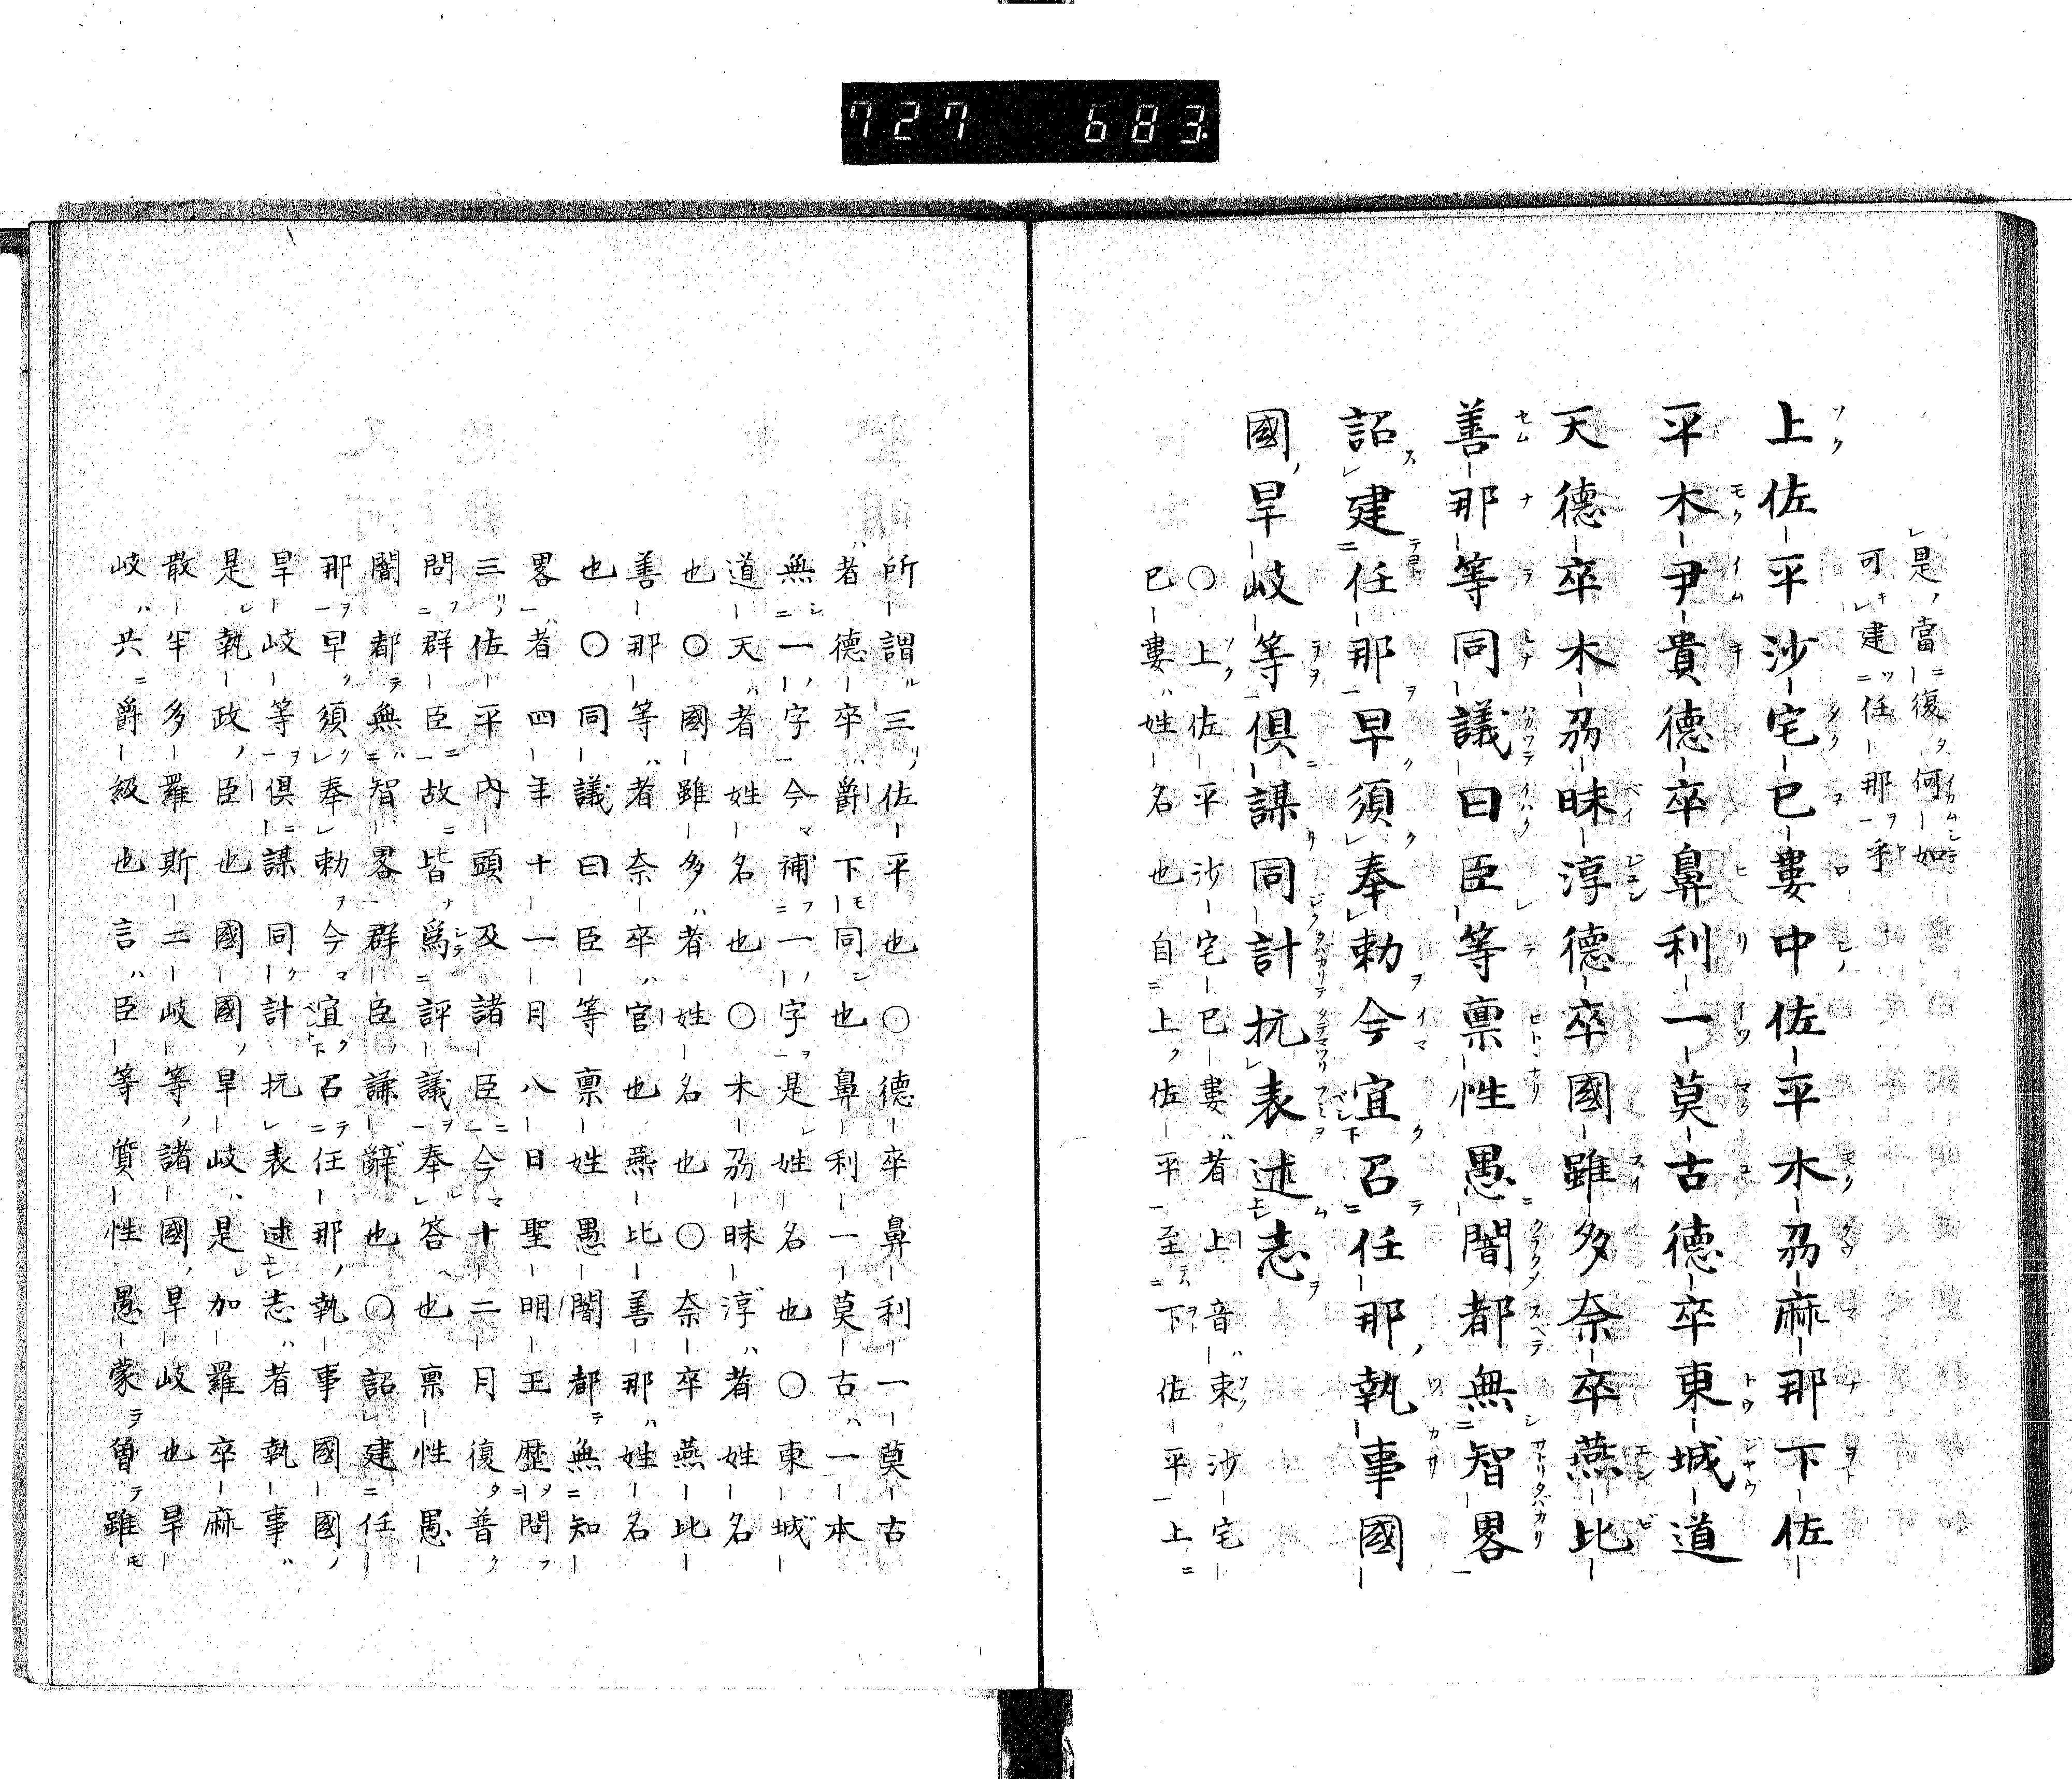 727 683.
是當復何如
可建任那乎
上佐平沙宅已婁中佐平木刕麻那下佐
平木尹貴德卒鼻利一莫古德卒東城道
天德卒木刕昧淳德卒國雖多奈卒燕比
善那等同議曰臣等禀性愚闇都無智畧
詔建任那早須奉勅今宜召任那執事國
國旱岐等俱謀同計抗表述志
〇上佐平沙宅已婁者上音束沙宅
已婁姓名也自上佐平至下佐平上
所謂三佐平也〇德卒鼻利一莫古
者德卒爵下同也鼻利一莫古一本
無一字今補一字是姓名也〇東城
道天者姓名也〇木刕昧淳者姓名
也〇國雖多者姓名也〇奈卒燕比
善那等者奈卒官也燕比善那姓名
也〇同議曰臣等禀姓愚闇都無知
畧者四年十一月八日聖明王歷問
三佐平內頭及諸臣今十二月復普
問群臣故皆爲評議奉答也禀性愚
闇都無智畧群臣謙辭也〇詔建任
那早須奉勅今宜召任那執事國國
旱岐等俱謀同計抗表述志者執事
是執政臣也國國旱岐是加羅卒麻
散半多羅斯二岐等諸國旱岐也旱
岐共爵級也言臣等質性愚蒙曾雖